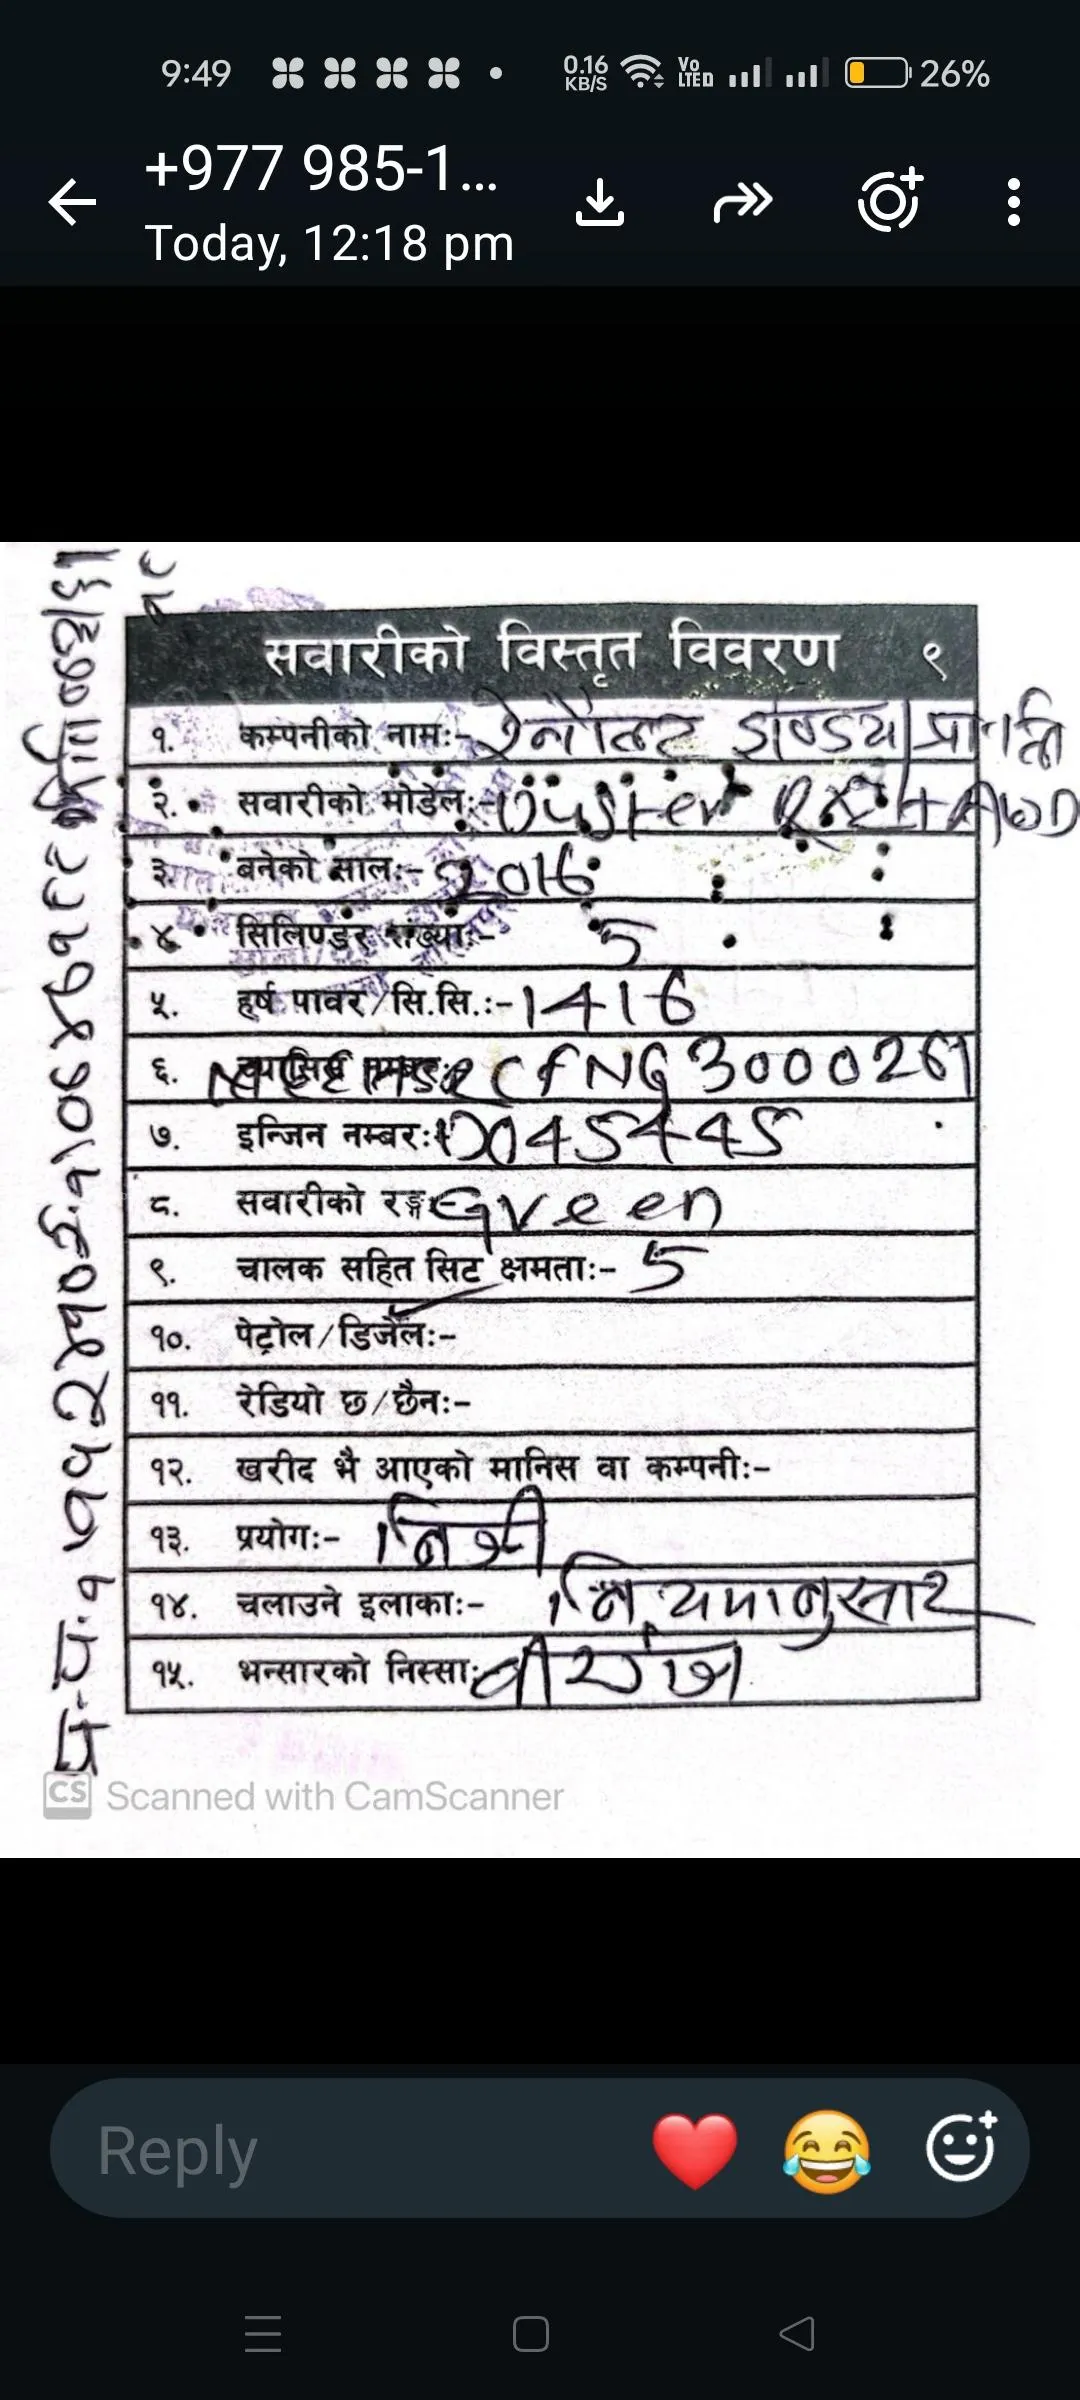 9:49 0.16 KB/S Vo LTED 26%
+977 985-1...
Today, 12:18 pm
सवारीको विस्तृत विवरण ९
१. कम्पनीको नामः- रेनौल्ट इण्डिया प्रा लि
२. सवारीको मोडेलः- Duster RXZ AWD
३. बनेको सालः- 2016
४. सिलिण्डर संख्याः- 5
५. हर्ष पावर/सि.सि.:- 1416
६. CFNG3000261
७. इन्जिन नम्बरः D045445
८. सवारीको रङ्ग Green
९. चालक सहित सिट क्षमताः- 5
१०. पेट्रोल/डिजेलः-
११. रेडियो छ/छैनः-
१२. खरीद भै आएको मानिस वा कम्पनीः-
१३. प्रयोगः- निजी
१४. चलाउने इलाकाः- नियमानुसार
१५. भन्सारको निस्साः वीरगंज
CS Scanned with CamScanner
Reply